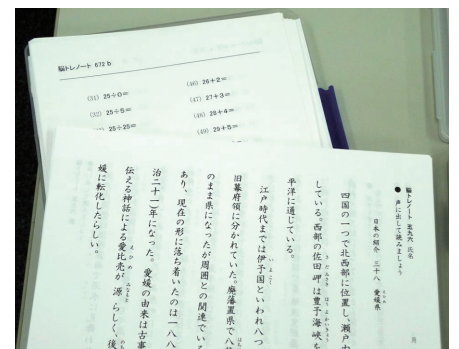 脳トレノート 672 b
(31) 25÷0=
(32) 25÷5=
25÷25=
(46) 26+2=
(47) 27+3=
(48) 28+4=
(49) 29+5=
脳トレノート 五九六 氏名
● 声に出して読みましょう
日本の紹介 三十八 愛媛県
四国の一つで北西部に位置し、瀬戸内
している。西部の佐田岬は豊予海峡を
平洋に通じている。
江戸時代までは伊予国といわれ八つ
旧幕府領に分かれていた。廃藩置県で八
のまま県になったが周囲との関連でいろ
あり、現在の形に落ち着いたのは一八八
治二十一)年になった。愛媛の由来は古事
伝える神話による愛比売が源らしく、後
媛に転化したらしい。